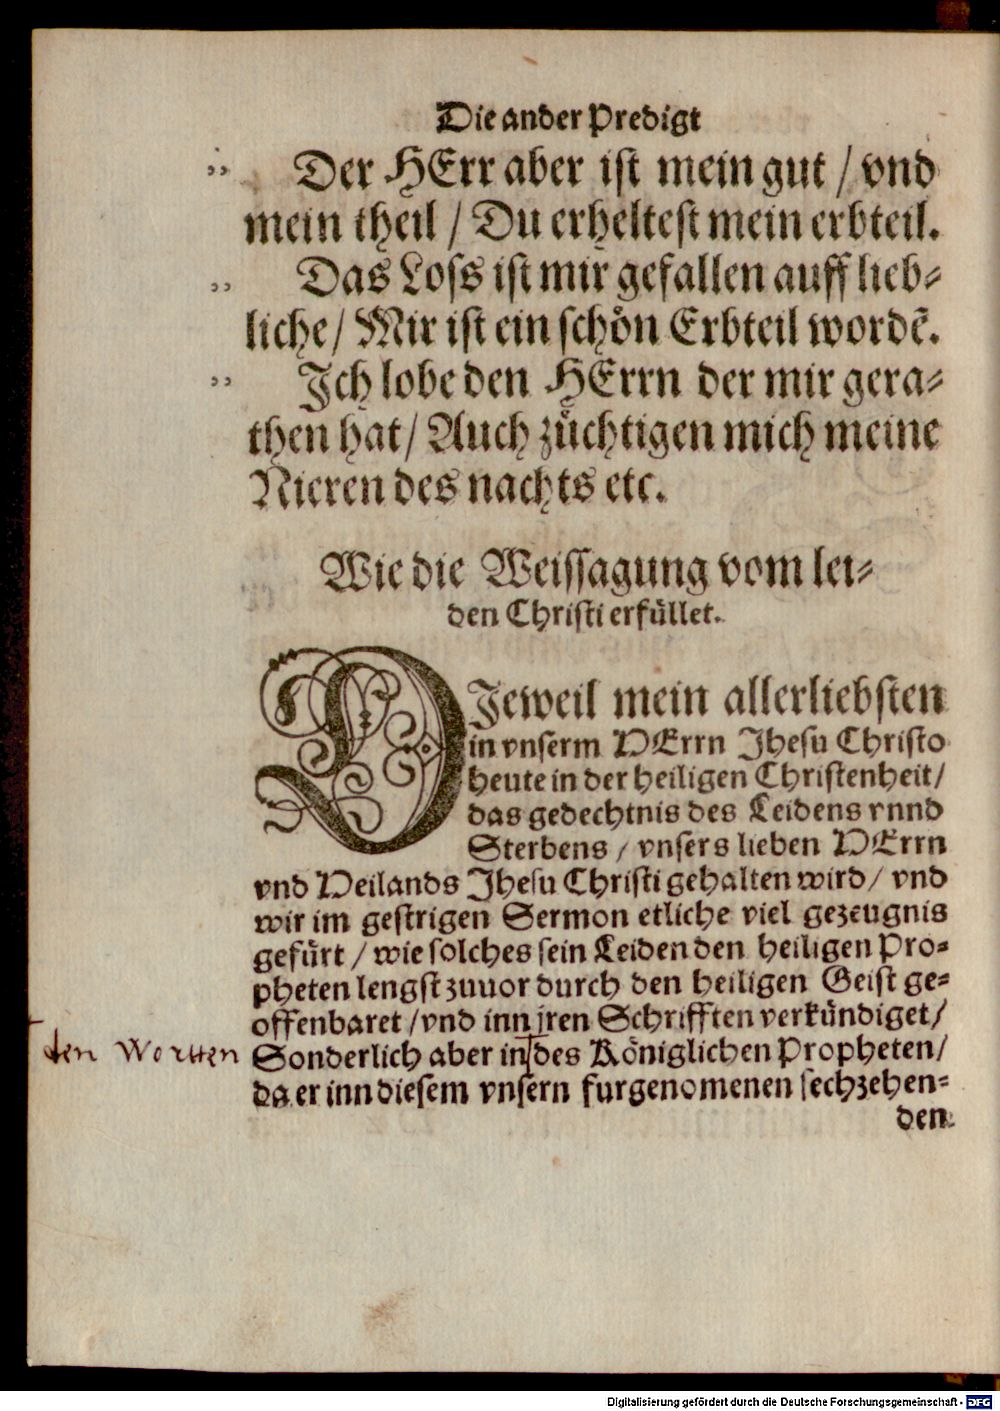 Die ander Predigt
„ Der HErr aber ist mein gut / vnd
mein theil / Du erheltest mein erbteil.
„ Das Loss ist mir gefallen auff lieb-
liche / Mir ist ein schön Erbteil wordẽ.
„ Ich lobe den HErrn der mir gera-
then hat / Auch züchtigen mich meine
Nieren des nachts etc.
Wie die Weissagung vom lei-
den Christi erfüllet.
DIeweil mein allerliebsten
in vnserm HErrn Jhesu Christo
heute in der heiligen Christenheit /
das gedechtnis des Leidens vnnd
Sterbens / vnsers lieben HErrn
vnd Heilands Jhesu Christi gehalten wird / vnd
wir im gestrigen Sermon etliche viel gezeugnis
gefürt / wie solches sein Leiden den heiligen Pro-
pheten lengst zuuor durch den heiligen Geist ge-
offenbaret / vnd inn jren Schrifften verkündiget /
den Wortten
Sonderlich aber in des Königlichen Propheten /
da er inn diesem vnsern furgenomenen sechzehen-
den
Digitalisierung gefördert durch die Deutsche Forschungsgemeinschaft - DFG